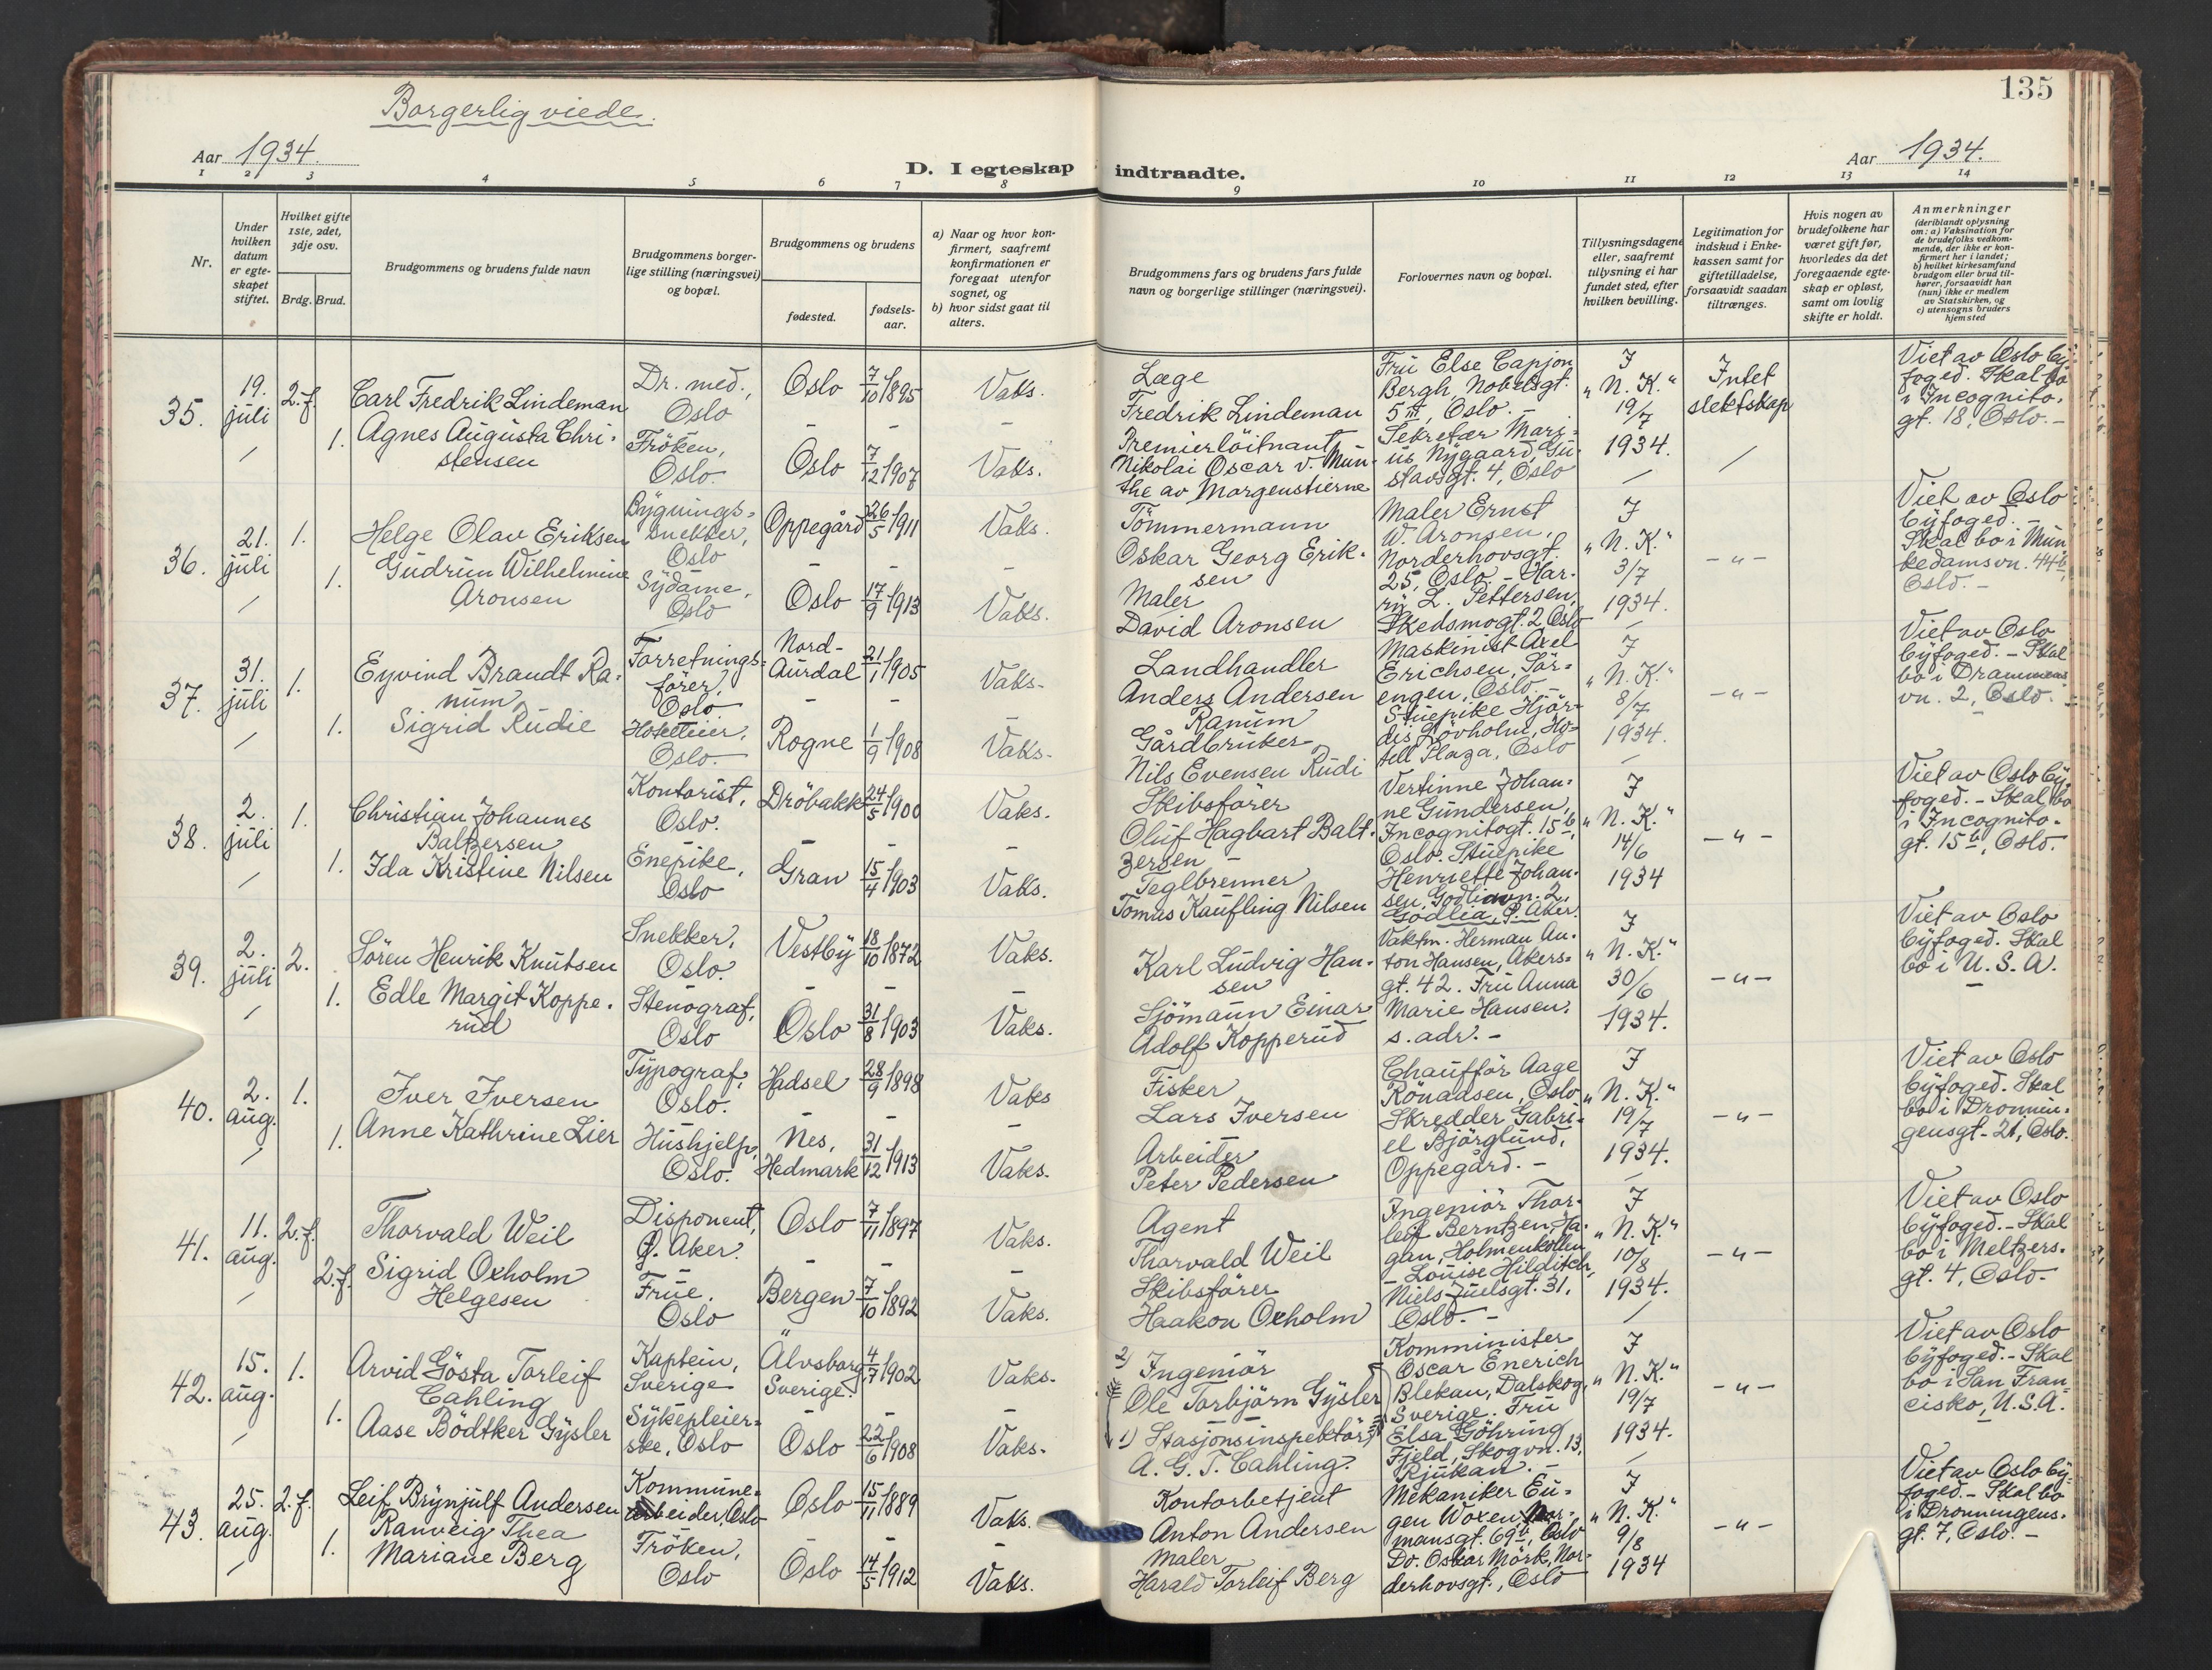 135
Borgerlig viede.
Aar 1934.
D. I egteskap indtraadte.
Aar 1934.
1 2 3 4 5 6 7 8 9 10 11 12 13 14
Nr.
Under hvilken datum er egteskapet stiftet.
Hvilket gifte 1ste, 2det, 3dje osv.
Brdg. Brud.
Brudgommens og brudens fulde navn
Brudgommens borgerlige stilling (næringsvei) og bopæl.
Brudgommens og brudens
fødested.
fødselsaar.
a) Naar og hvor konfirmert, saafremt konfirmationen er foregaat utenfor sognet, og
b) hvor sidst gaat til alters.
Brudgommens fars og brudens fars fulde navn og borgerlige stillinger (næringsvei).
Forlovernes navn og bopæl.
Tillysningsdagene eller, saafremt tillysning ei har fundet sted, efter hvilken bevilling.
Legitimation for indskud i Enkekassen samt for giftetilladelse, forsaavidt saadan tiltrænges.
Hvis nogen av brudefolkene har været gift før, hvorledes da det foregaaende egteskap er opløst, samt om lovlig skifte er holdt.
Anmerkninger
(deriblandt oplysning om: a) Vaksination for de brudefolks vedkommende, der ikke er konfirmert her i landet; b) hvilket kirkesamfund brudgom eller brud tilhører, forsaavidt han (hun) ikke er medlem av Statskirken, og c) utensogns bruders hjemsted
35. 19. juli 2. f.
Carl Fredrik Lindeman
Dr. med., Oslo
Oslo 7/10 1895
Vaks.
Læge
Fredrik Lindeman
1. Agnes Augusta Christensen
Fröken, Oslo.
Oslo 7/12 1907
Vaks.
Premierlöitnant
Nikolai Oscar v. Munthe av Morgenstierne
Fru Else Capjon Bergh, Nobelsgt. 5 III, Oslo. -
Sekretær Marius Nygaard, Gustavsgt. 4, Oslo
I "N. K." 19/7 1934.
Intet slektskap
Viet av Oslo byfoged. Skal bo i Incognitogt. 18, Oslo. -
36. 21. juli 1.
Helge Olav Eriksen
Bygningssnekker, Oslo
Oppegård 26/5 1911
Vaks.
Tömmermann
Oskar Georg Eriksen
1. Gudrun Wilhelmine Aronsen
Sydame, Oslo
Oslo 17/9 1913
Vaks.
Maler
David Aronsen
Maler Ernst W. Aronsen, Norderhovsgt. 25, Oslo. - Harry L. Pettersen, Skedsmogt. 2, Oslo
I "N. K." 3/7 1934.
- " -
Viet av Oslo byfoged. - Skal bo i Munkedamsvn. 44 b, Oslo. -
37. 31. juli 1.
Eyvind Brandt Ranum
Forretningsförer, Oslo.
Nord-Aurdal 21/1 1905
Vaks.
Landhandler
Anders Andersen Ranum
1. Sigrid Rudie
Hotelleier, Oslo.
Rogne 1/9 1908
Vaks.
Gårdbruker
Nils Evensen Rudi
Maskinist Axel Erichsen, Sörengen, Oslo.
Stuepike Hjördis Lövholm, Hotell Plaza, Oslo
I "N. K." 8/7 1934.
- " -
Viet av Oslo byfoged. - Skal bo i Drammensvn. 2, Oslo.
38. 2. juli 1.
Christian Johannes Baltzersen
Kontorist, Oslo.
Dröbakk 24/5 1900
Vaks.
Skibsförer
Oluf Hagbart Baltzersen -
1. Ida Kristine Nilsen
Enepike, Oslo
Gran 15/4 1903
Vaks.
Teglbrenner
Tomas Kaufling Nilsen
Vertinne Johanne Gundersen, Incognitogt. 15 b, Oslo. Stuepike Henriette Johansen, Godliavn. 2, Godlia, Ø. Aker.
I "N. K." 14/6 1934
- " -
Viet av Oslo byfoged. - Skal bo i Incognitogt. 15 b, Oslo.
39. 2. juli 2.
Sören Henrik Knutsen
Snekker, Oslo.
Vestby 18/10 1872
Vaks.
Karl Ludvig Hansen
1. Edle Margit Kopperud
Stenograf, Oslo
Oslo 31/8 1903
Vaks.
Sjömann Einar Adolf Kopperud
Vaktm. Herman Anton Hansen, Akersgt. 42. Fru Anna Marie Hansen, s. adr. -
I "N. K." 30/6 1934.
- " -
Viet av Oslo byfoged. Skal bo i U. S. A.
40. 2. aug. 1.
Iver Iversen
Typograf, Oslo.
Hadsel 28/9 1898
Vaks
Fisker
Lars Iversen
1. Anne Kathrine Lier
Hushjelp, Oslo.
Nes, Hedmark 31/12 1913
Vaks.
Arbeider
Peter Pedersen
Chaufför Aage Rönadsen, Oslo
Skredder Gabriel Björglund, Oppegård. -
I "N. K." 19/7 1934.
- " -
Viet av Oslo byfoged. Skal bo i Dronningensgt. 21, Oslo.
41. 11. aug. 2. f.
Thorvald Weil
Disponent, Ø. Aker.
Oslo 7/11 1897
Vaks.
Agent
Thorvald Weil
2. f. Sigrid Oxholm Helgesen
Frue, Oslo
Bergen 7/10 1892
Vaks.
Skibsförer
Haakon Oxholm
Ingeniör Thorleif Berntzen, Hagan, Holmenkollen
- Louise Hilditch, Niels Juelsgt. 31, Oslo. -
I "N. K." 10/8 1934.
- " -
Viet av Oslo byfoged. - Skal bo i Meltzersgt. 4, Oslo.
42. 15. aug. 1.
Arvid Gösta Torleif Cahling
Kaptein, Sverige
Älvsborg, Sverige. 4/7 1902
Vaks.
2) Ingeniör
Ole Torbjörn Gysler
1. Aase Bödtker Gysler
Sykepleierske, Oslo
Oslo 22/6 1908
Vaks.
1) Stasjonsinspektör
A. G. T. Cahling.
Komminister Oscar Enerich Blekan, Dalskog, Sverige. Fru Elsa Göhring Fjeld, Skogvn. 13, Rjukan. -
I "N. K." 19/7 1934.
- " -
Viet av Oslo byfoged. - Skal bo i San Francisko, U.S.A.
43. 25. aug. 2. f.
Leif Brynjulf Andersen
Kommunearbeider, Oslo
Oslo 15/11 1889
Vaks.
Kontorbetjent
Anton Andersen
1. Ranveig Thea Mariane Berg
Fröken, Oslo
Oslo 14/5 1912
Vaks.
Maler
Harald Torleif Berg
Mekaniker Eugen Woxen, Normansgt. 69 b, Oslo
Do. Oskar Mörk, Norderhovsgt., Oslo
I "N. K." 9/8 1934
- " -
Viet av Oslo byfoged. - Skal bo i Dronningensgt. 7, Oslo. -